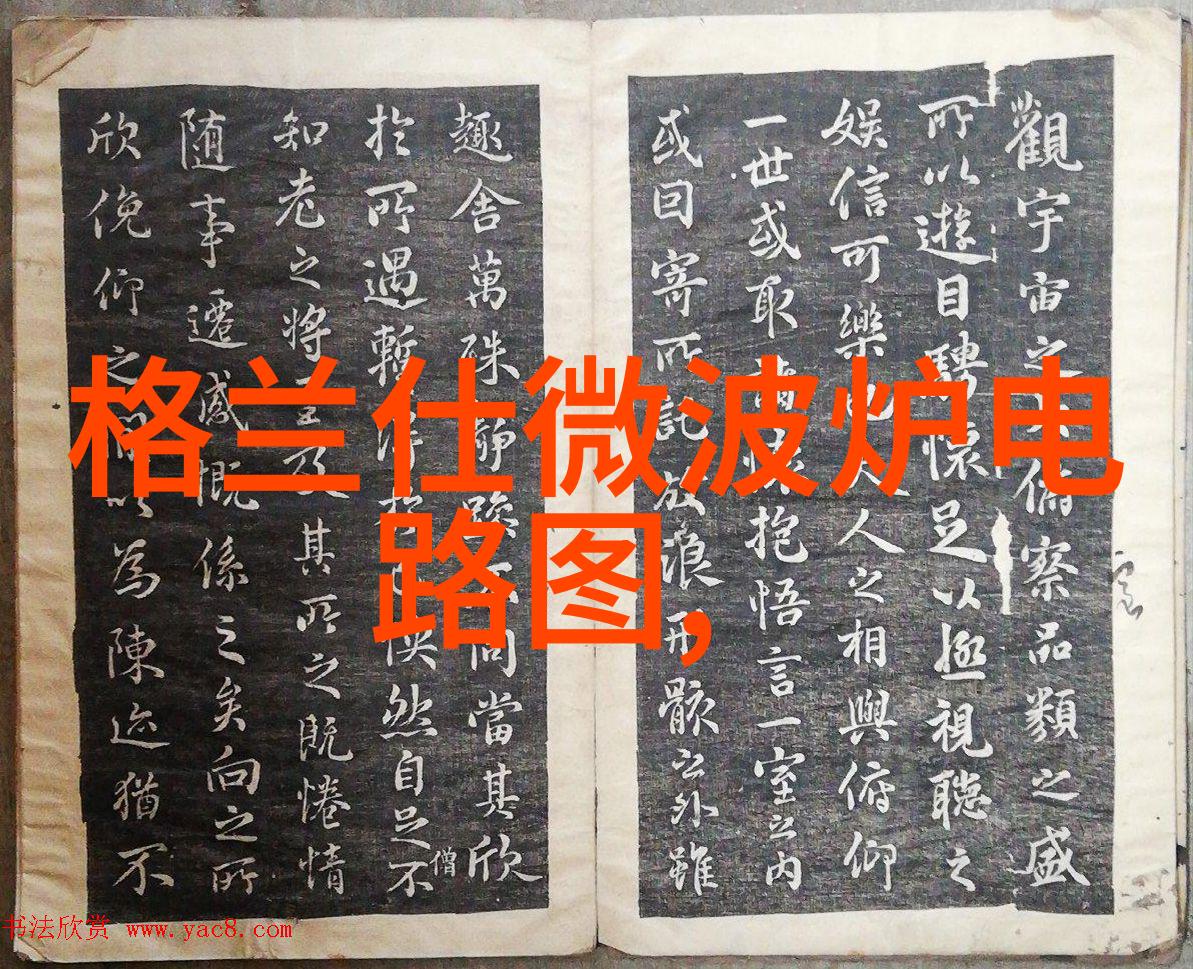 格兰仕微波炉电
路图,
觀宇宙之俯察品類之盛
所以遊目騁懷足以極視聽之
娱信可樂也人之相與俯仰
一世或取諸懷抱悟言一室之内
或因寄所託放浪形骸之外雖
趣舍萬殊靜躁不同當其欣
於所遇暫得快然自足不
僧
知老之将至及其所之既惓情
随事遷感慨係之矣向之所
欣俛仰之間以為陳迹猶不
书法欣赏 www.yac8.com